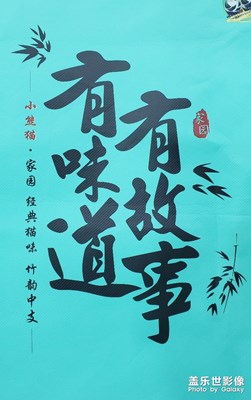 有味道
有故事
家园
小熊猫·家园 经典猫味 竹韵中支
盖乐世影像
Photo by Galaxy